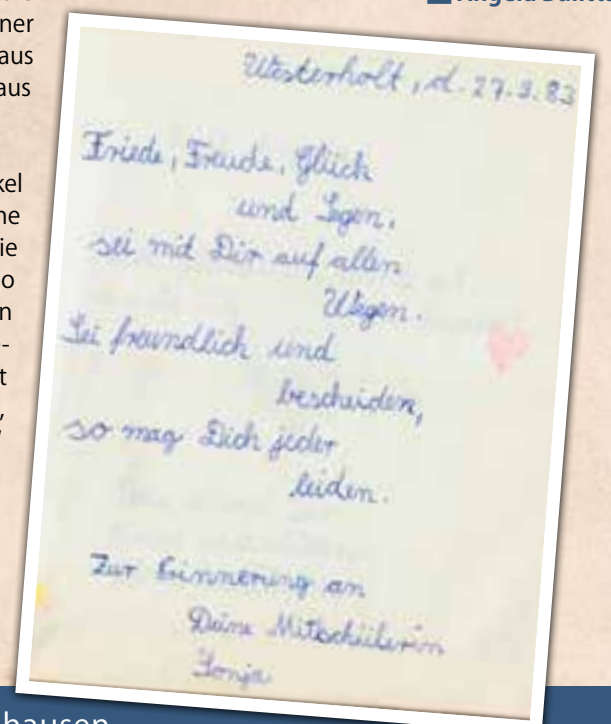 ner
aus
aus
kel
ne
ie
o
n
-
t
,
Angela
Westerholt, d. 27.3.83
Friede, Freude, Glück
und Segen,
sei mit Dir auf allen
Wegen.
Sei freundlich und
bescheiden,
so mag Dich jeder
leiden.
Zur Erinnerung an
Deine Mitschülerin
Sonja
hausen